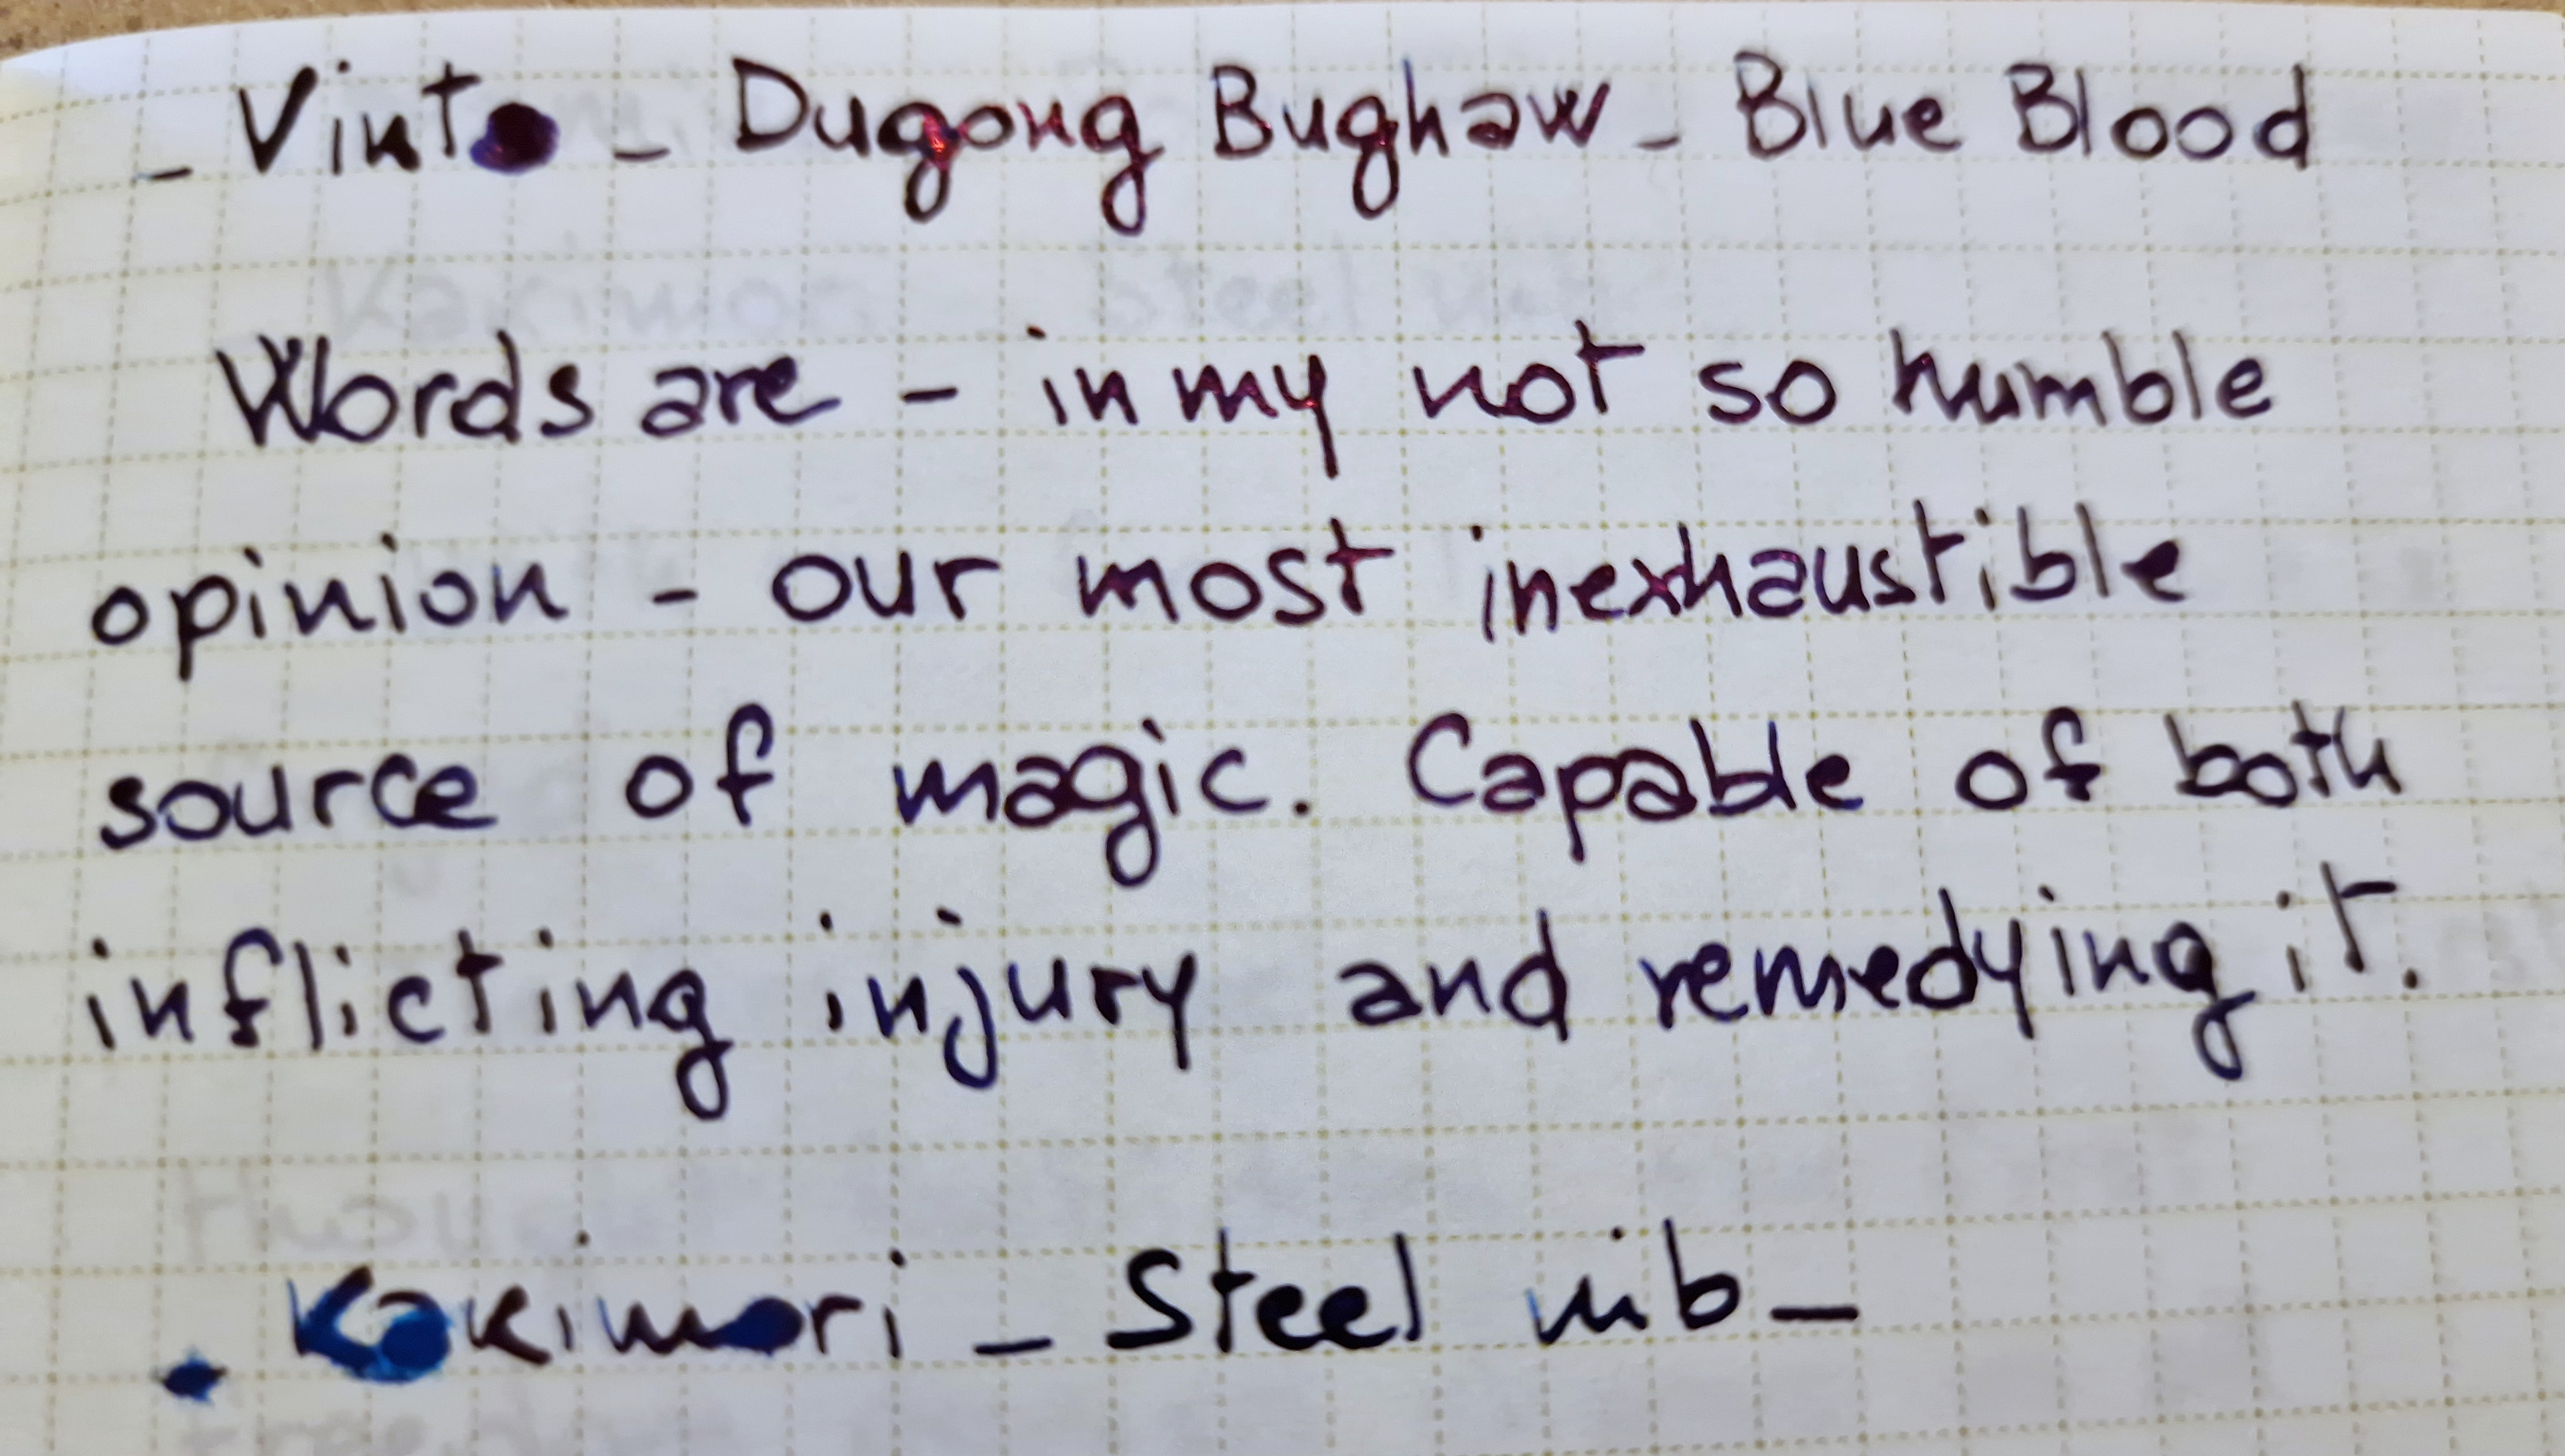 - Vinta - Dugong Bughaw - Blue Blood
Words are - in my not so humble
opinion - our most inexhaustible
source of magic. Capable of both
inflicting injury and remedying it.
. Kakimori - Steel nib -